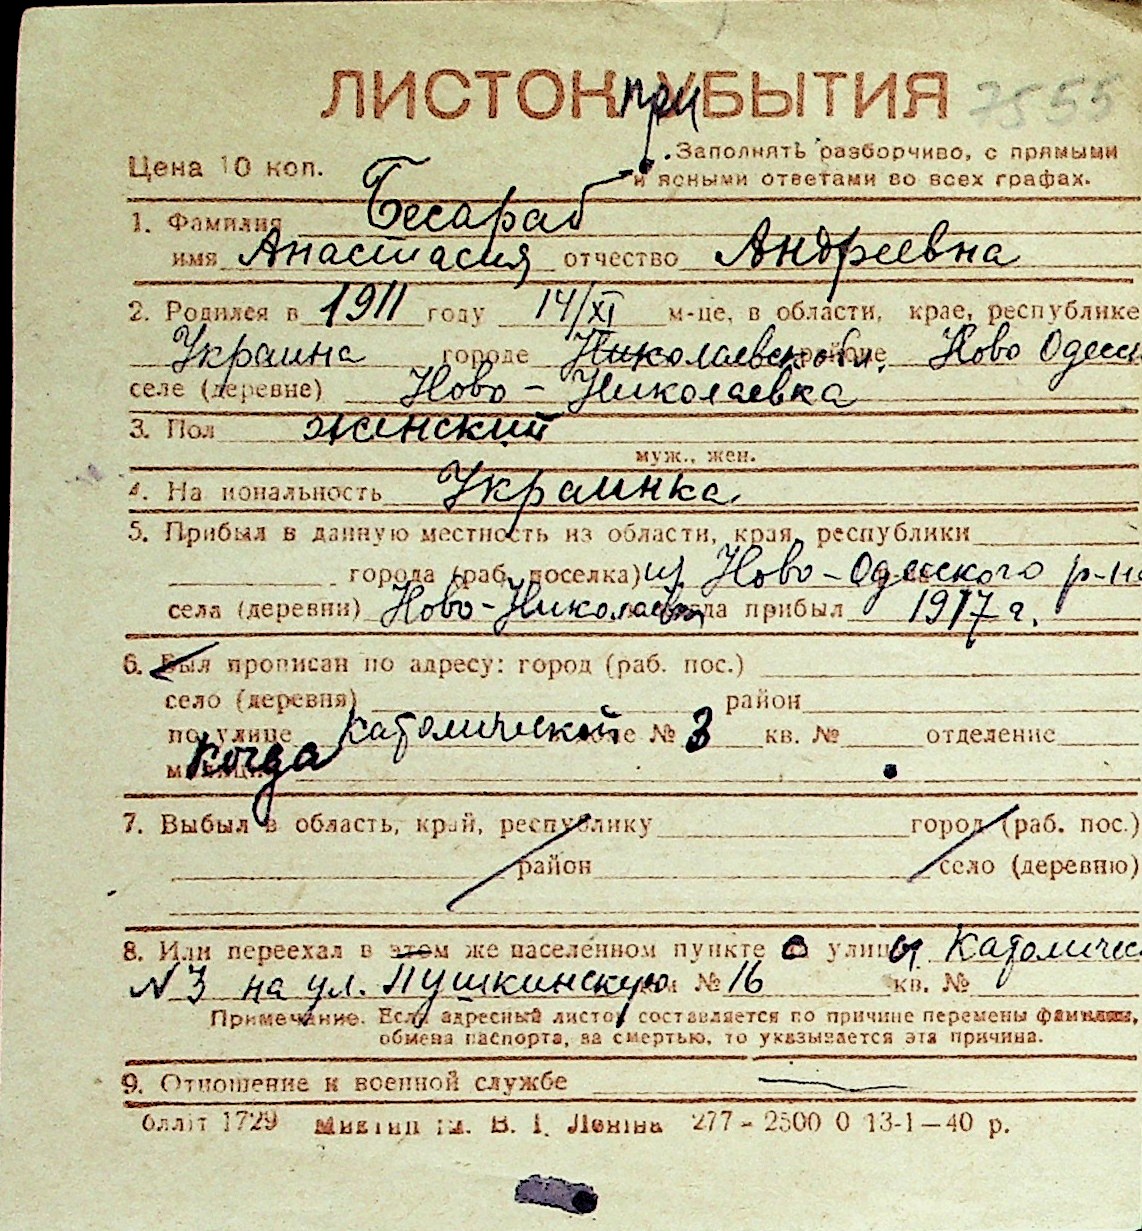 ЛИСТОК УБЫТИЯ
при
7555
Цена 10 коп.
Заполнять разборчиво, с прямыми
и ясными ответами во всех графах.
1. Фамилия Бесараб
имя Анастасия отчество Андреевна
2. Родился в 1911 году 14/XI м-це, в области, крае, республике
Украина городе Николаевской обл. районе Ново Одесс
селе (деревне) Ново-Николаевка
3. Пол женский
муж., жен.
4. На иональность Украинка
5. Прибыл в данную местность из области, края, республики
города (раб. поселка) из Ново-Одесского р-на
села (деревни) Ново-Николаевка когда прибыл 1917 г.
6. Был прописан по адресу: город (раб. пос.)
село (деревня) район
по улице Католической доме № 3 кв. № отделение
милиции когда
7. Выбыл в область, край, республику город (раб. пос.)
район село (деревню)
8. Или переехал в этом же населенном пункте с улицы Католичес
№3 на ул. Пушкинскую дом № 16 кв. №
Примечание. Если адресный листок составляется по причине перемены фамилии,
обмена паспорта, за смертью, то указывается эта причина.
9. Отношение к военной службе
блліт 1729 Миктип ім. В. І. Леніна 277 - 2500 0 13-1-40 р.